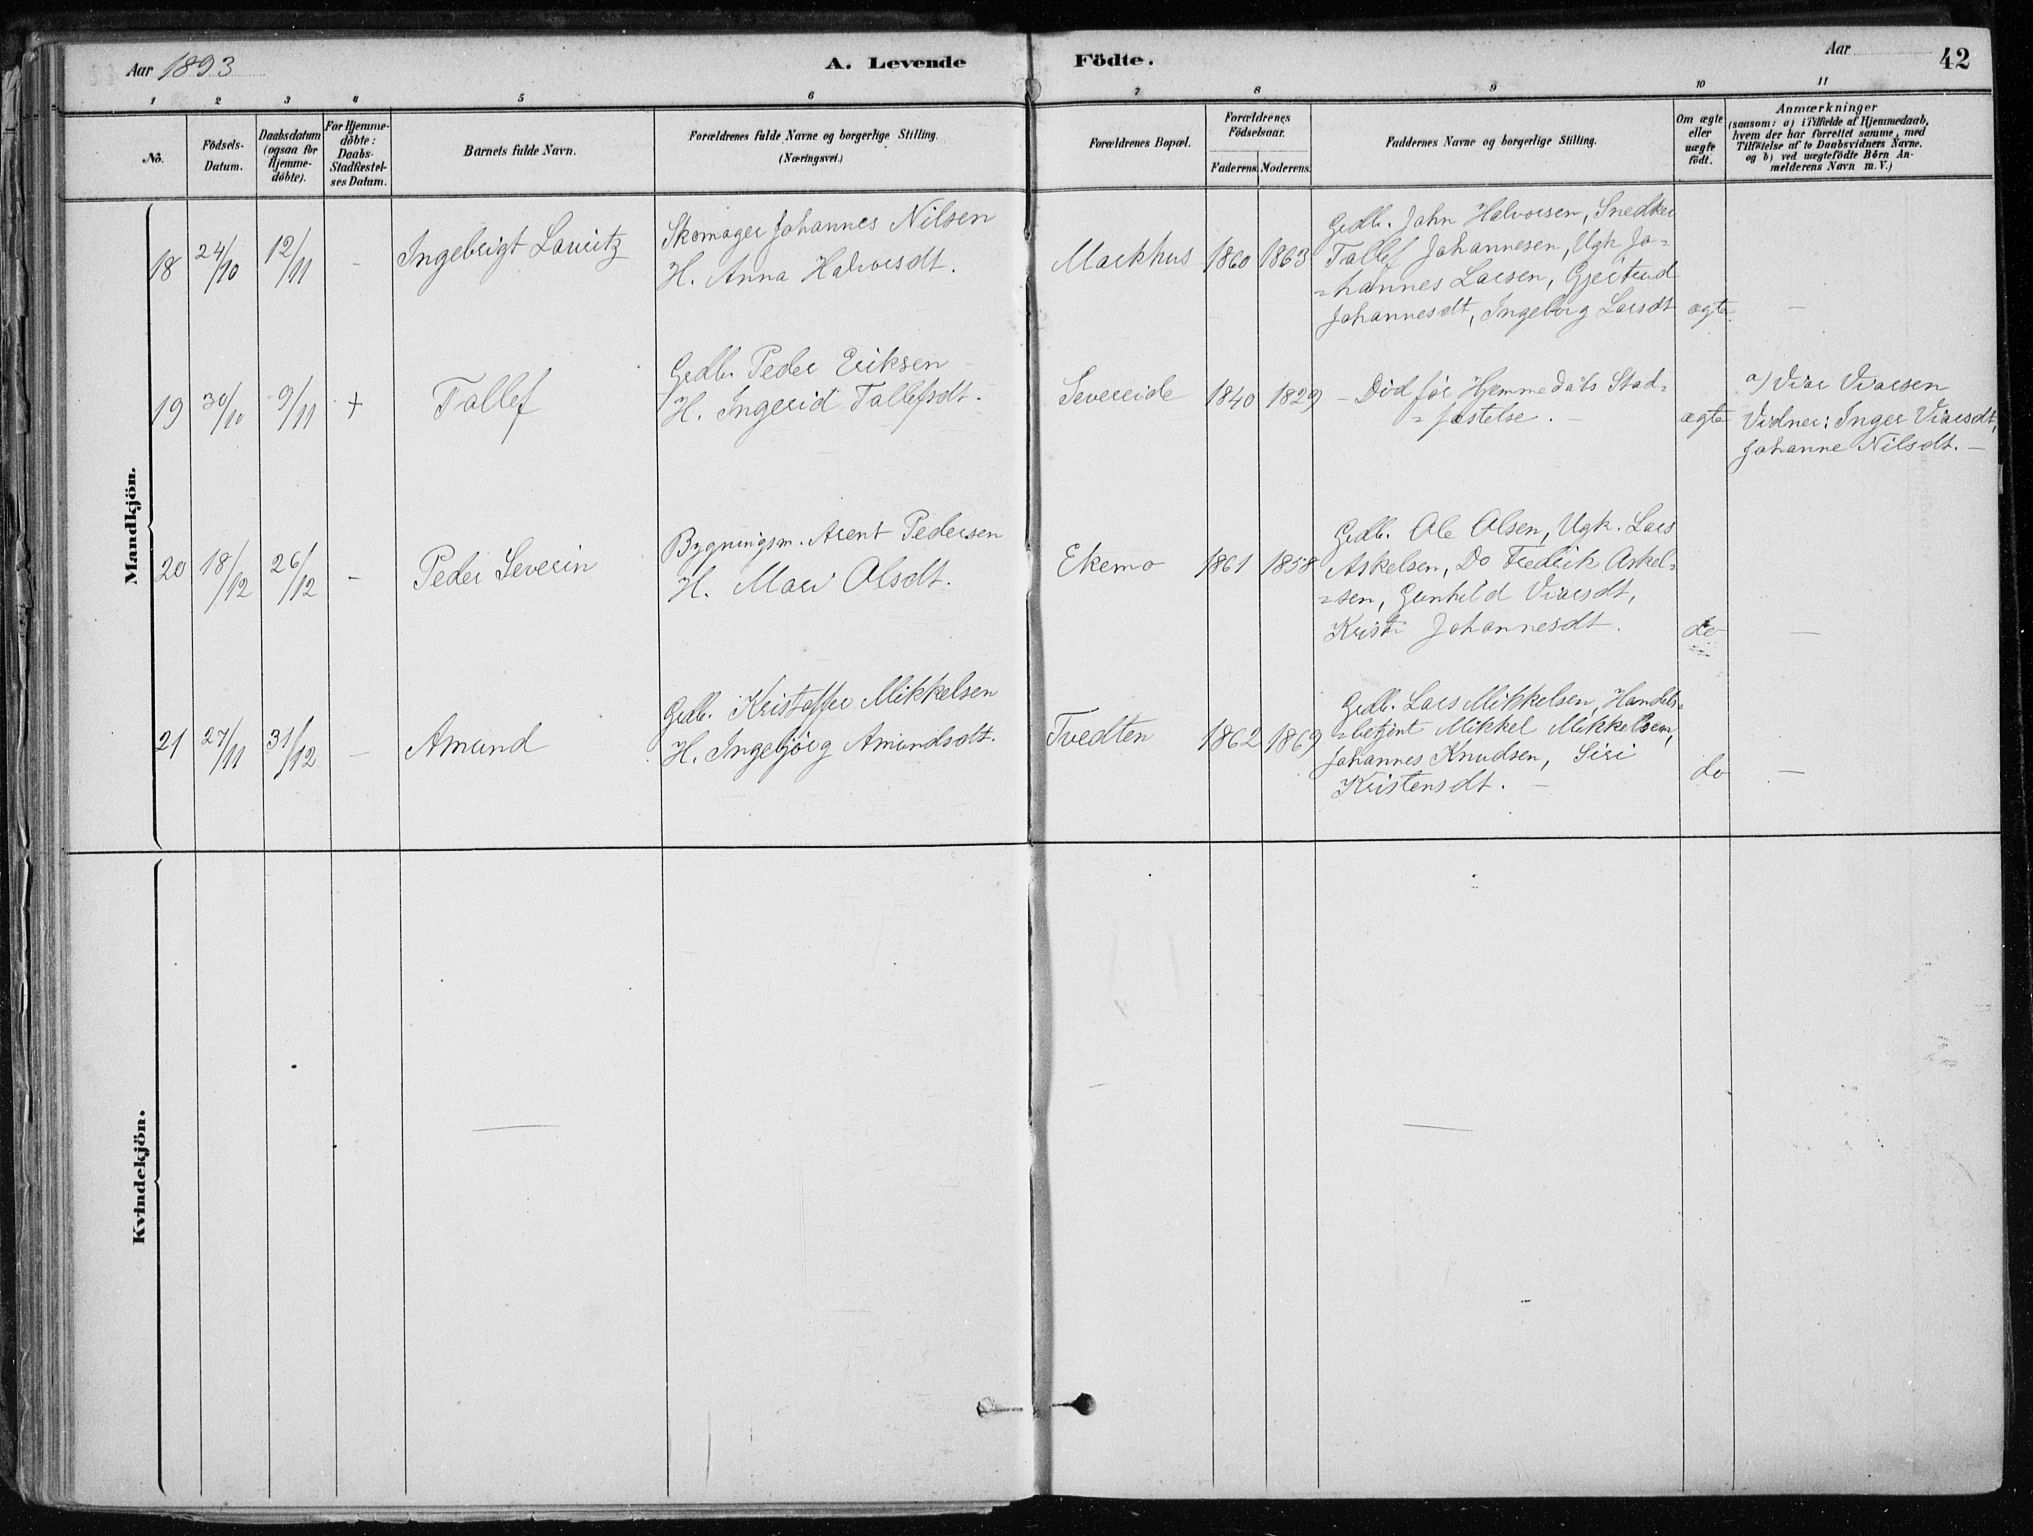 Aar 1893
A. Levende
Födte.
Aar
42
1 2 3 4 5 6 7 8 9 10 11
No.
Födsels-Datum.
Daabsdatum (ogsaa for Hjemme-döbte).
For Hjemme-döbte: Daabs-Stadfæstel-ses Datum.
Barnets fulde Navn.
Forældrenes fulde Navne og borgerlige Stilling.
(Næringsvei.)
Forældrenes Bopæl.
Forældrenes Födselsaar.
Faderens. Moderens.
Faddernes Navne og borgerlige Stilling.
Om ægte eller uægte födt.
Anmærkninger
(saasom: a) i Tilfælde af Hjemmedaab,
hvem der har forrettet samme, med
Tilföielse af to Daabsvidners Navne.
og b) ved uægtefödte Börn An-
melderens Navn m.V.)
Mandkjön.
18 24/10 12/11 - Ingebrigt Lauritz
Skomager Johannes Nilsen
H. Anna Halvorsdt.
Markhus 1860 1863
Grdb. John Halvorsen, Snedker
Tallef Johannesen, Ugk Jo-
=hannes Larsen, Gjertrud
Johannesdt, Ingeborg Larsdt
ægte -
19 30/10 9/11 + Tallef
Grdb. Peder Eriksen
H. Ingerid Tallefsdt.
Severeide 1840 1829
- Död för Hjemmedaabs Stad=
=fæstelse. -
ægte
a) Viar Viarsen
Vidner: Inger Viarsdt,
Johanne Nilsdt. -
20 18/12 26/12 - Peder Severin
Bygningsm. Arent Pedersen
H. Mari Olsdt.
Ekemo 1861 1858
Grdb. Ole Olsen, Ugk. Lars
Askelsen, Do Fredrik Askel=
=sen, Gunhild Viarsdt,
Kristi Johannesdt.
do -
21 27/11 31/12 - Amund
Grdb. Kristoffer Mikkelsen
H. Ingebjörg Amundsdt.
Tvedten 1862 1869
Grdb. Lars Mikkelsen, Handels=
=betjent Mikkel Mikkelsen,
Johannes Knudsen, Siri
Kristensdt. -
do -
Kvindekjön.